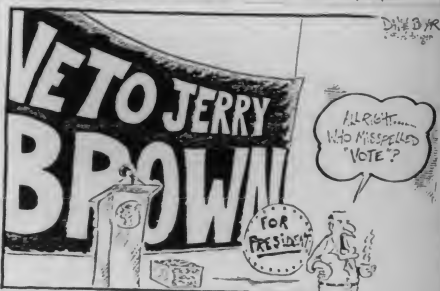 VETO JERRY
BROWN
FOR
PRESIDENT
ALLRIGHT.....
WHO MISSPELLED
"VOTE"?